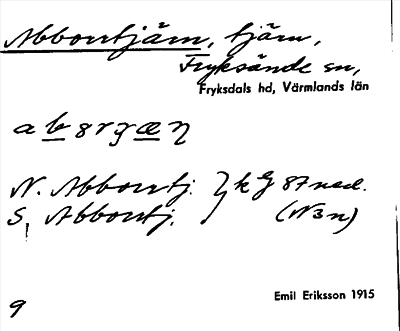 Abborrtjärn, tjärn,
Fryksände sn,
Fryksdals hd, Värmlands län
N. Abborrtj. } k
S. Abborrtj. (N3n)
Emil Eriksson 1915
9